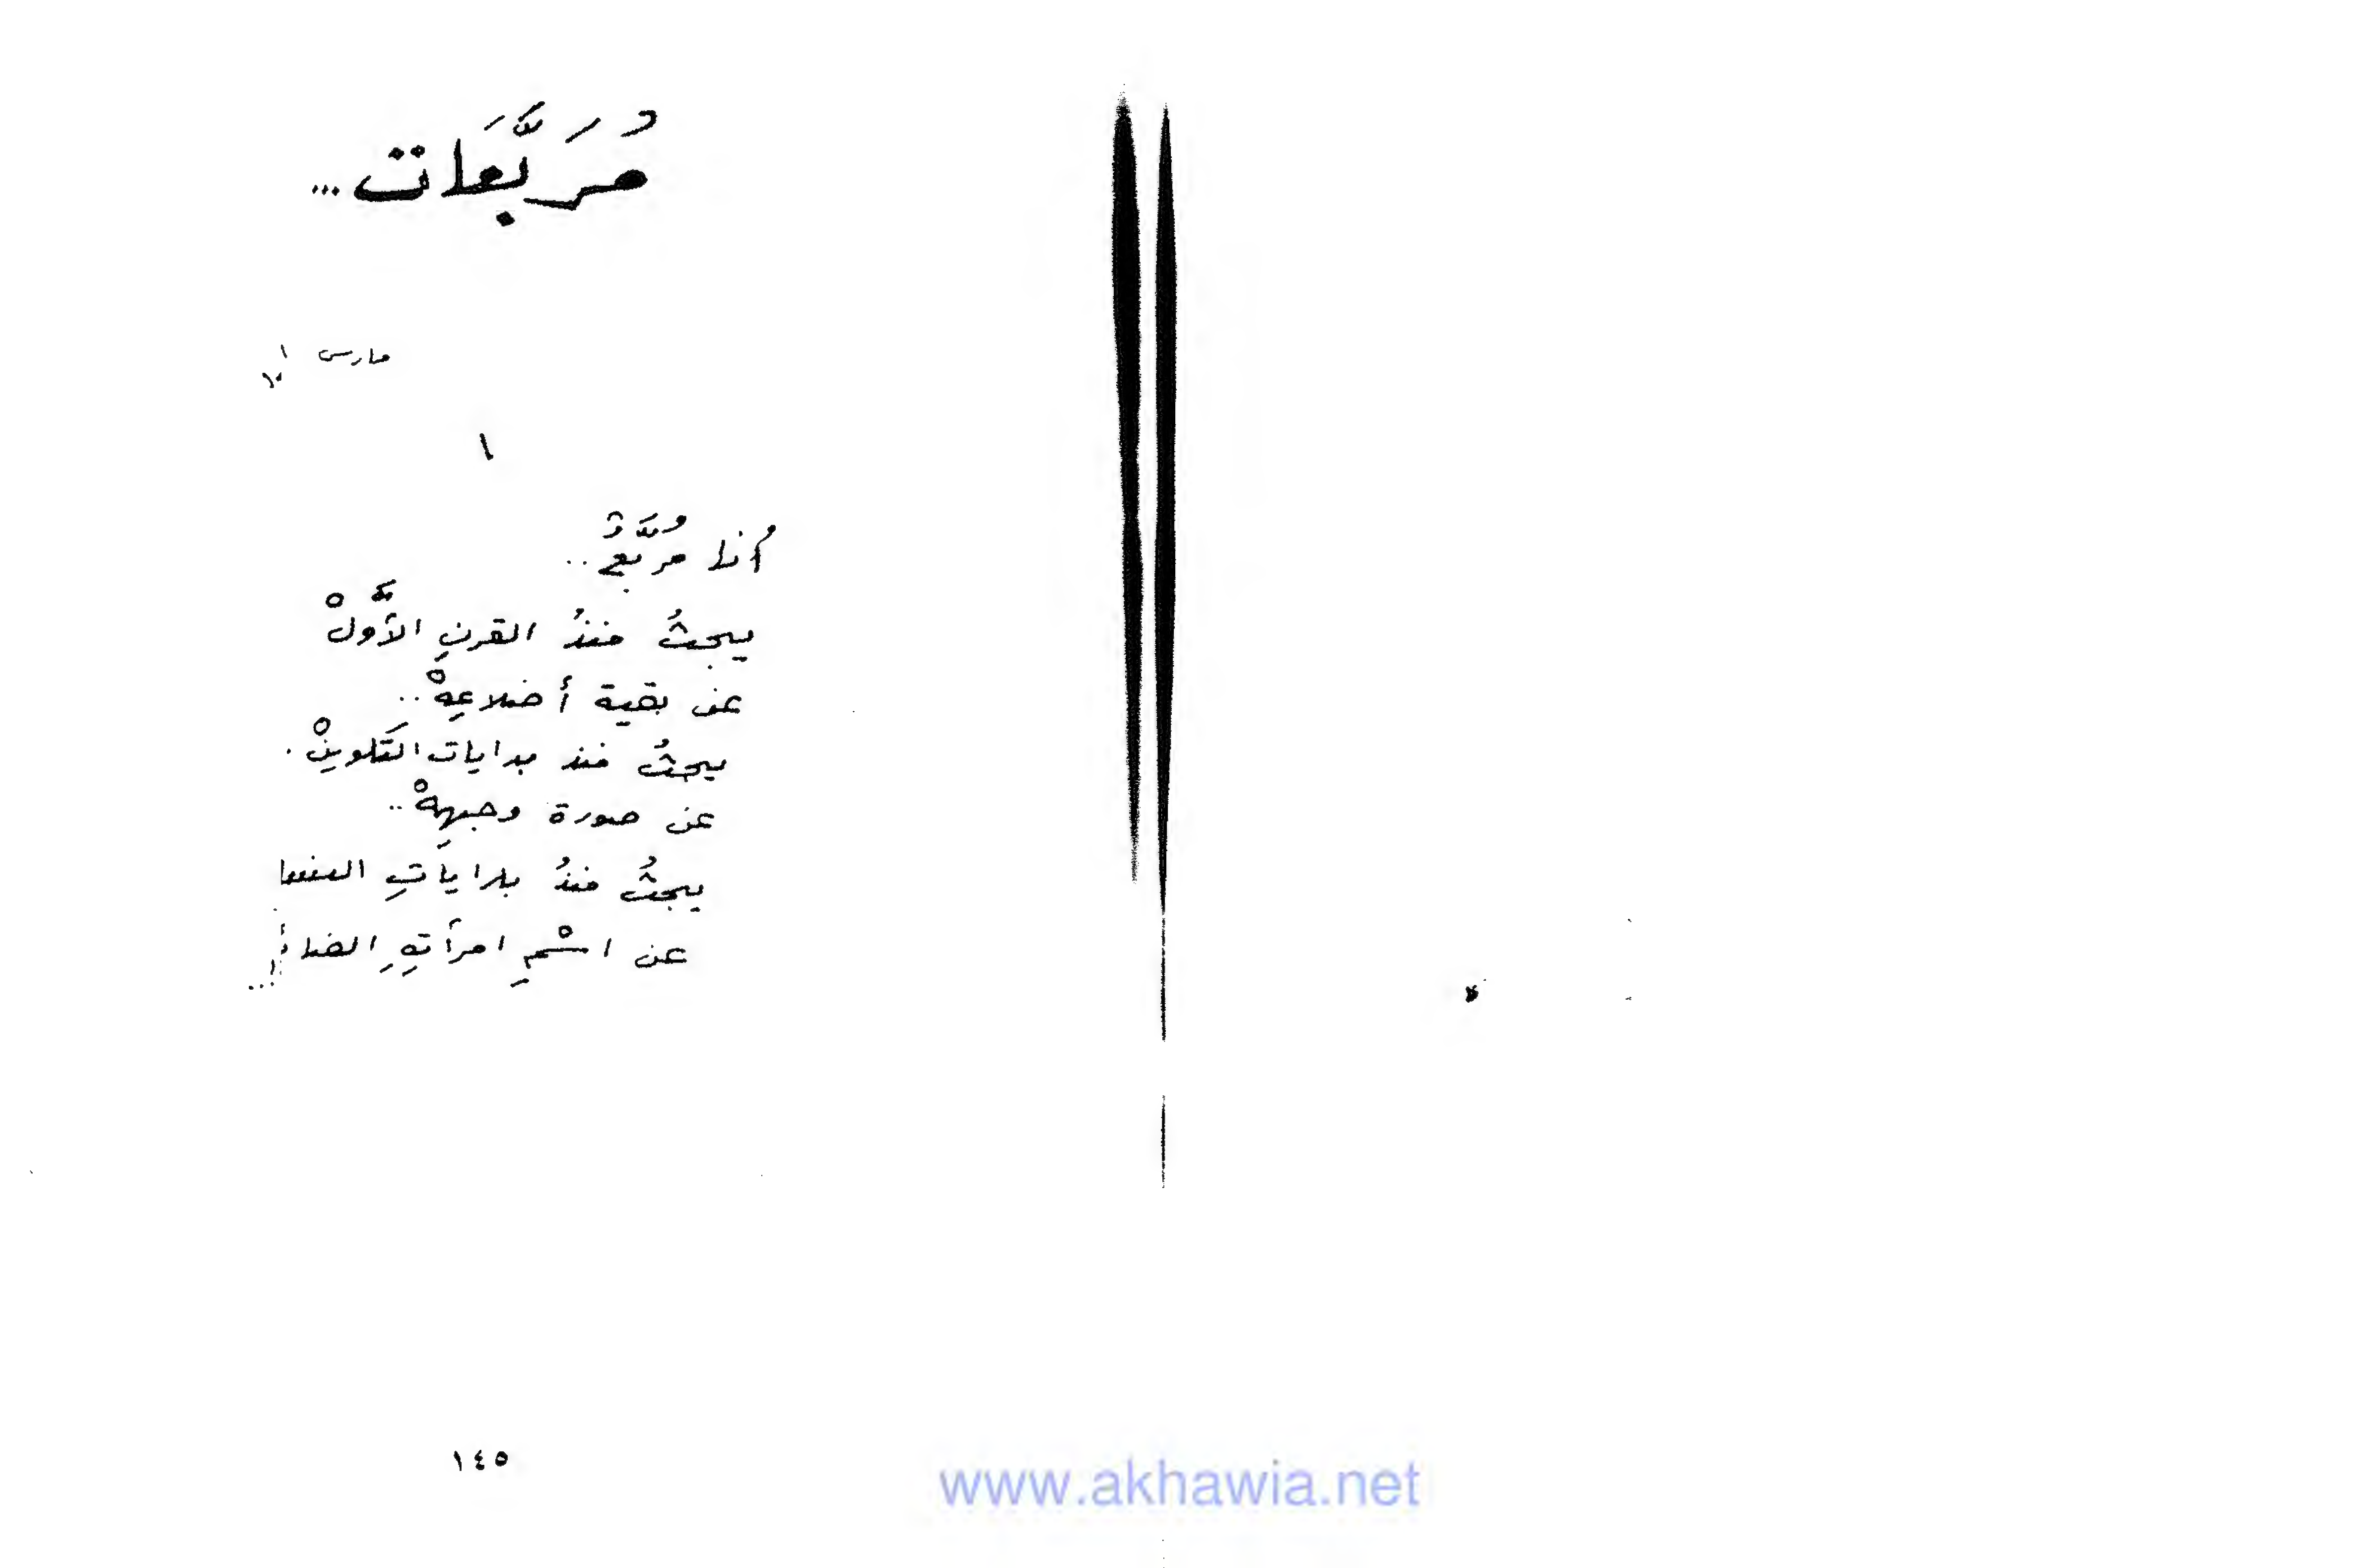 مُرَبَّعَات...
مارس ١
١
أُنا مُرَبَّعٌ..
يبحثُ منذُ القرنِ الأَوَّلْ
عن بقية أضلاعِهْ..
يبحثُ منذ بدايات التَكوينْ.
عن صورة وجهِهْ..
يبحثُ منذُ بداياتِ
عن اسْمِ امرأتِهِ
١٤٥
www.akhawia.net